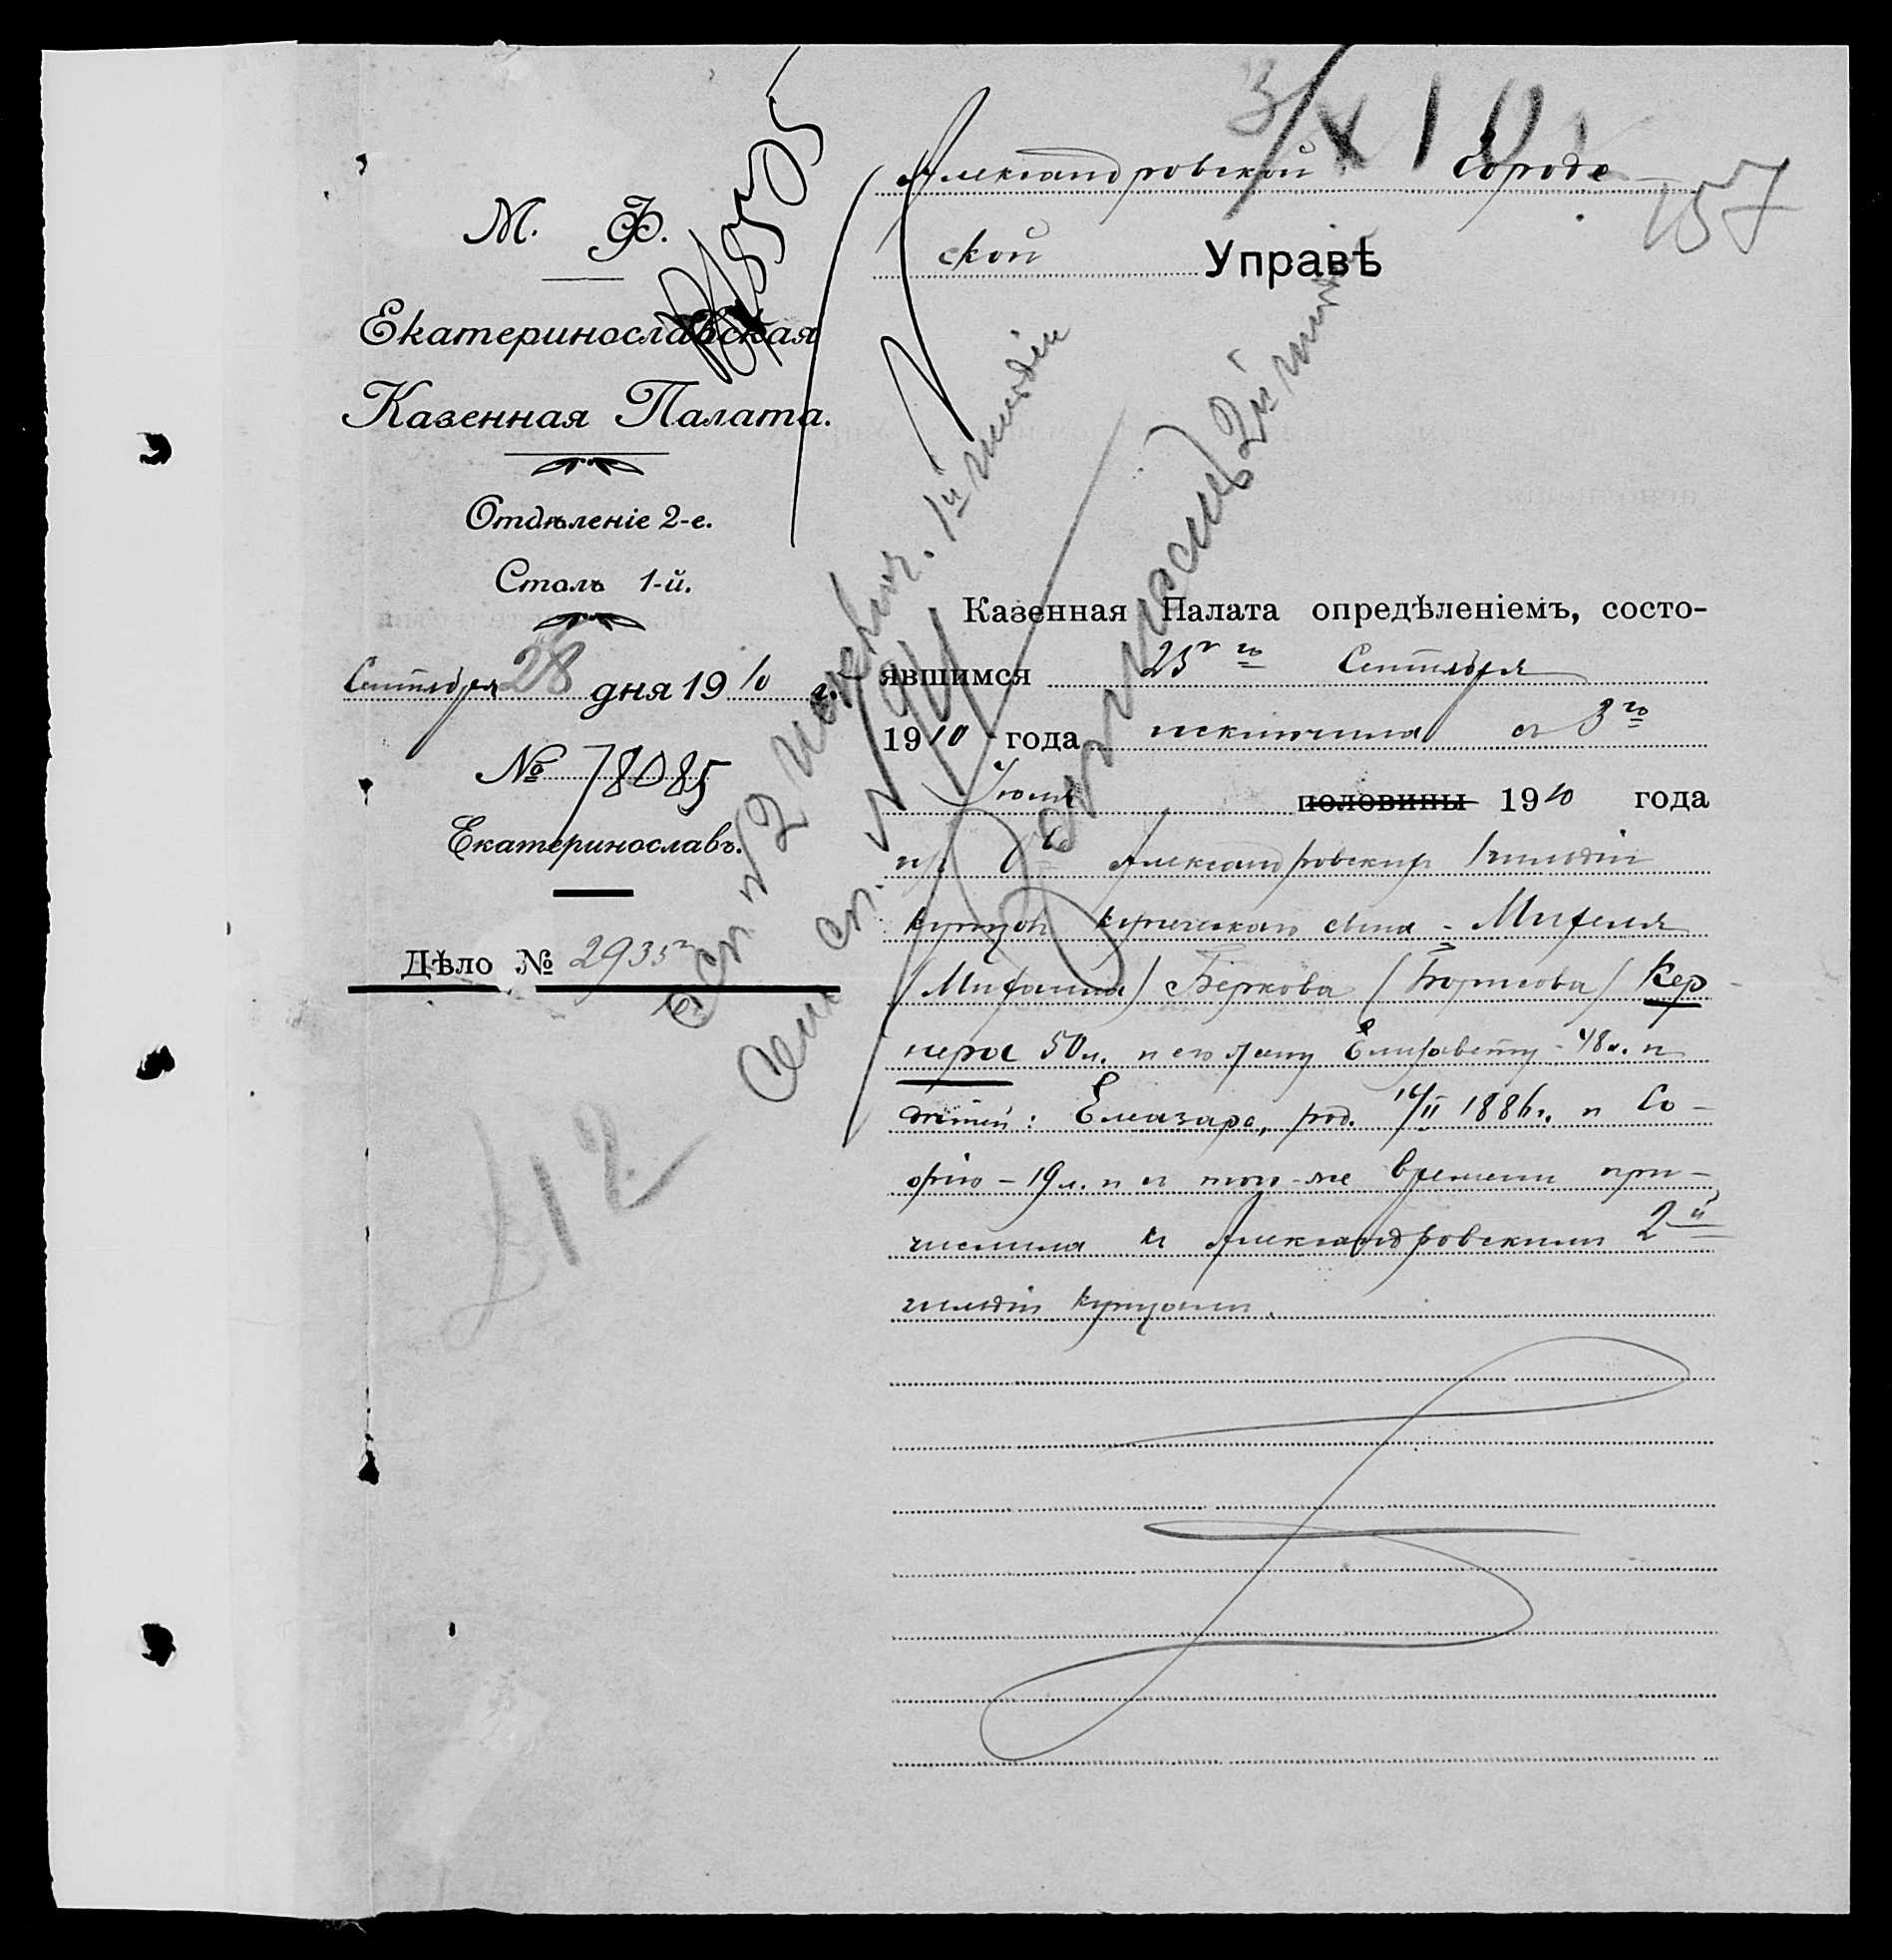 3/X 10
157
М. Ф.
Екатеринославская
Казенная Палата.
Отдѣленіе 2-е.
Столъ 1-й.
Сентября 28 дня 1910 г.
№ 78085
Екатеринославъ.
Дѣло № 2935
Александровской Город
ской Управѣ
Казенная Палата опредѣленіемъ, состо-
явшимся 25 го Сентября
1910 года исключила съ 3 го
Іюля половины 1910 года
изъ Александровскихъ 1 гильдіи
купцовъ купеческаго сына - Михеля
(Михаила) Беркова (Борисова) Кер
нера 50 л. и его жену Елизавету - 48 л. и
дѣтей: Елеазара, род. 14/II 1886 г. и Со-
фію - 19 л. и съ того-же времени при-
числила къ Александровскимъ 2 й
гильдіи купцамъ.
1й гильдіи
2й
12